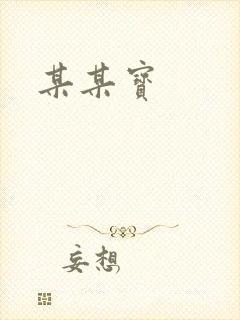 某某寶
妄想